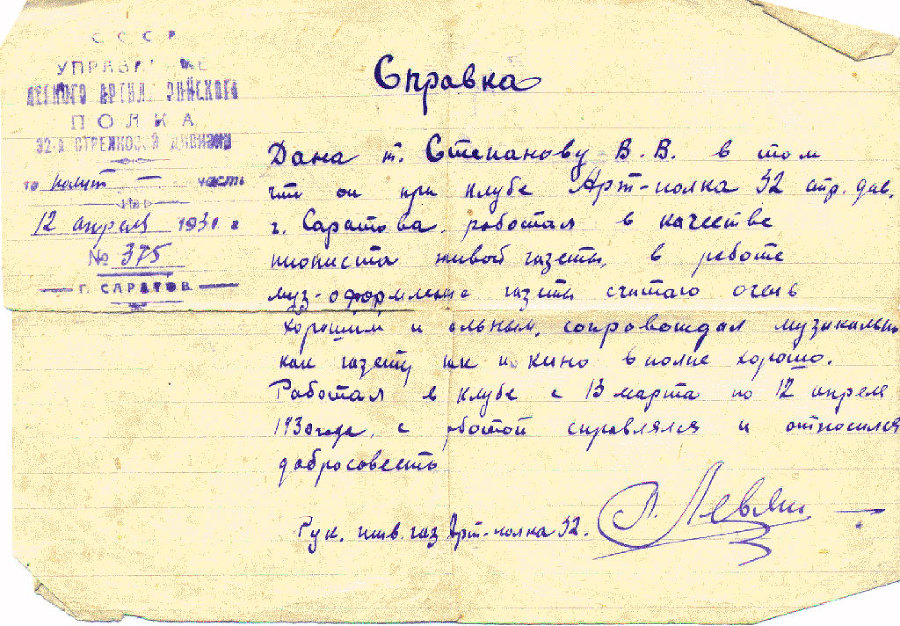 СССР
УПРАВЛЕНИЕ
ЛЕГКОГО АРТИЛЛЕРИЙСКОГО
ПОЛКА
32-й СТРЕЛКОВОЙ ДИВИЗИИ
часть
12 апреля 1931 г
№ 375
Г. САРАТОВ
Справка
Дана т. Степанову В. В. в том
что он при клубе Арт-полка 32 стр. див.
г. Саратова, работал в качестве
пиониста живой газеты, в работе
муз-оформление газеты считаю очень
хорошим и сопровождал музикально
как газету так и кино вполне хорошо.
Работал в клубе с 13 марта по 12 апреля
1930 года, с работой справлялся и относился
добросовесть
Рук. жив. газ Арт-полка 32.
Левян